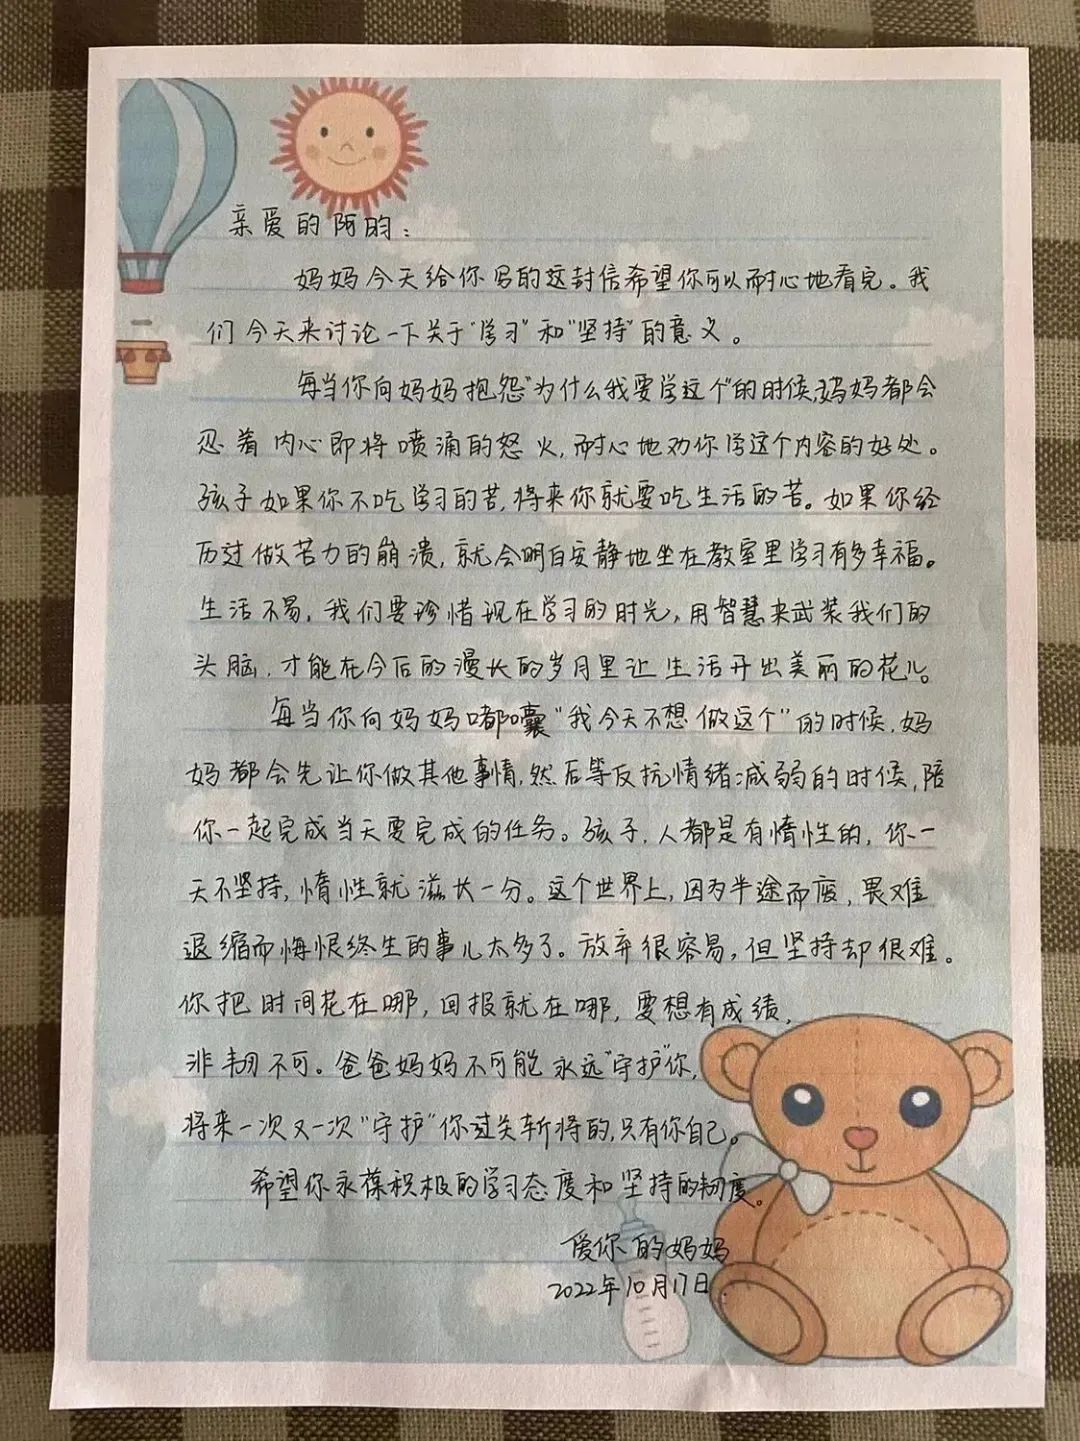 亲爱的阿昀：
妈妈今天给你写的这封信希望你可以耐心地看完。我
们今天来讨论一下关于“学习”和“坚持”的意义。
每当你向妈妈抱怨“为什么我要学这个”的时候，妈妈都会
忍着内心即将喷涌的怒火，耐心地劝你学这个内容的好处。
孩子如果你不吃学习的苦，将来你就要吃生活的苦。如果你经
历过做苦力的崩溃，就会明白安静地坐在教室里学习有多幸福。
生活不易，我们要珍惜现在学习的时光，用智慧来武装我们的
头脑，才能在今后的漫长的岁月里让生活开出美丽的花儿。
每当你向妈妈嘟囔“我今天不想做这个”的时候，妈
妈都会先让你做其他事情，然后等反抗情绪减弱的时候，陪
你一起完成当天要完成的任务。孩子，人都是有惰性的，你一
天不坚持，惰性就滋长一分。这个世界上，因为半途而废，畏难
退缩而悔恨终生的事儿太多了。放弃很容易，但坚持却很难。
你把时间花在哪，回报就在哪，要想有成绩，
非韧不可。爸爸妈妈不可能永远“守护”你，
将来一次又一次“守护”你过关斩将的，只有你自己。
希望你永葆积极的学习态度和坚持的韧度。
爱你的妈妈
2022年10月17日.